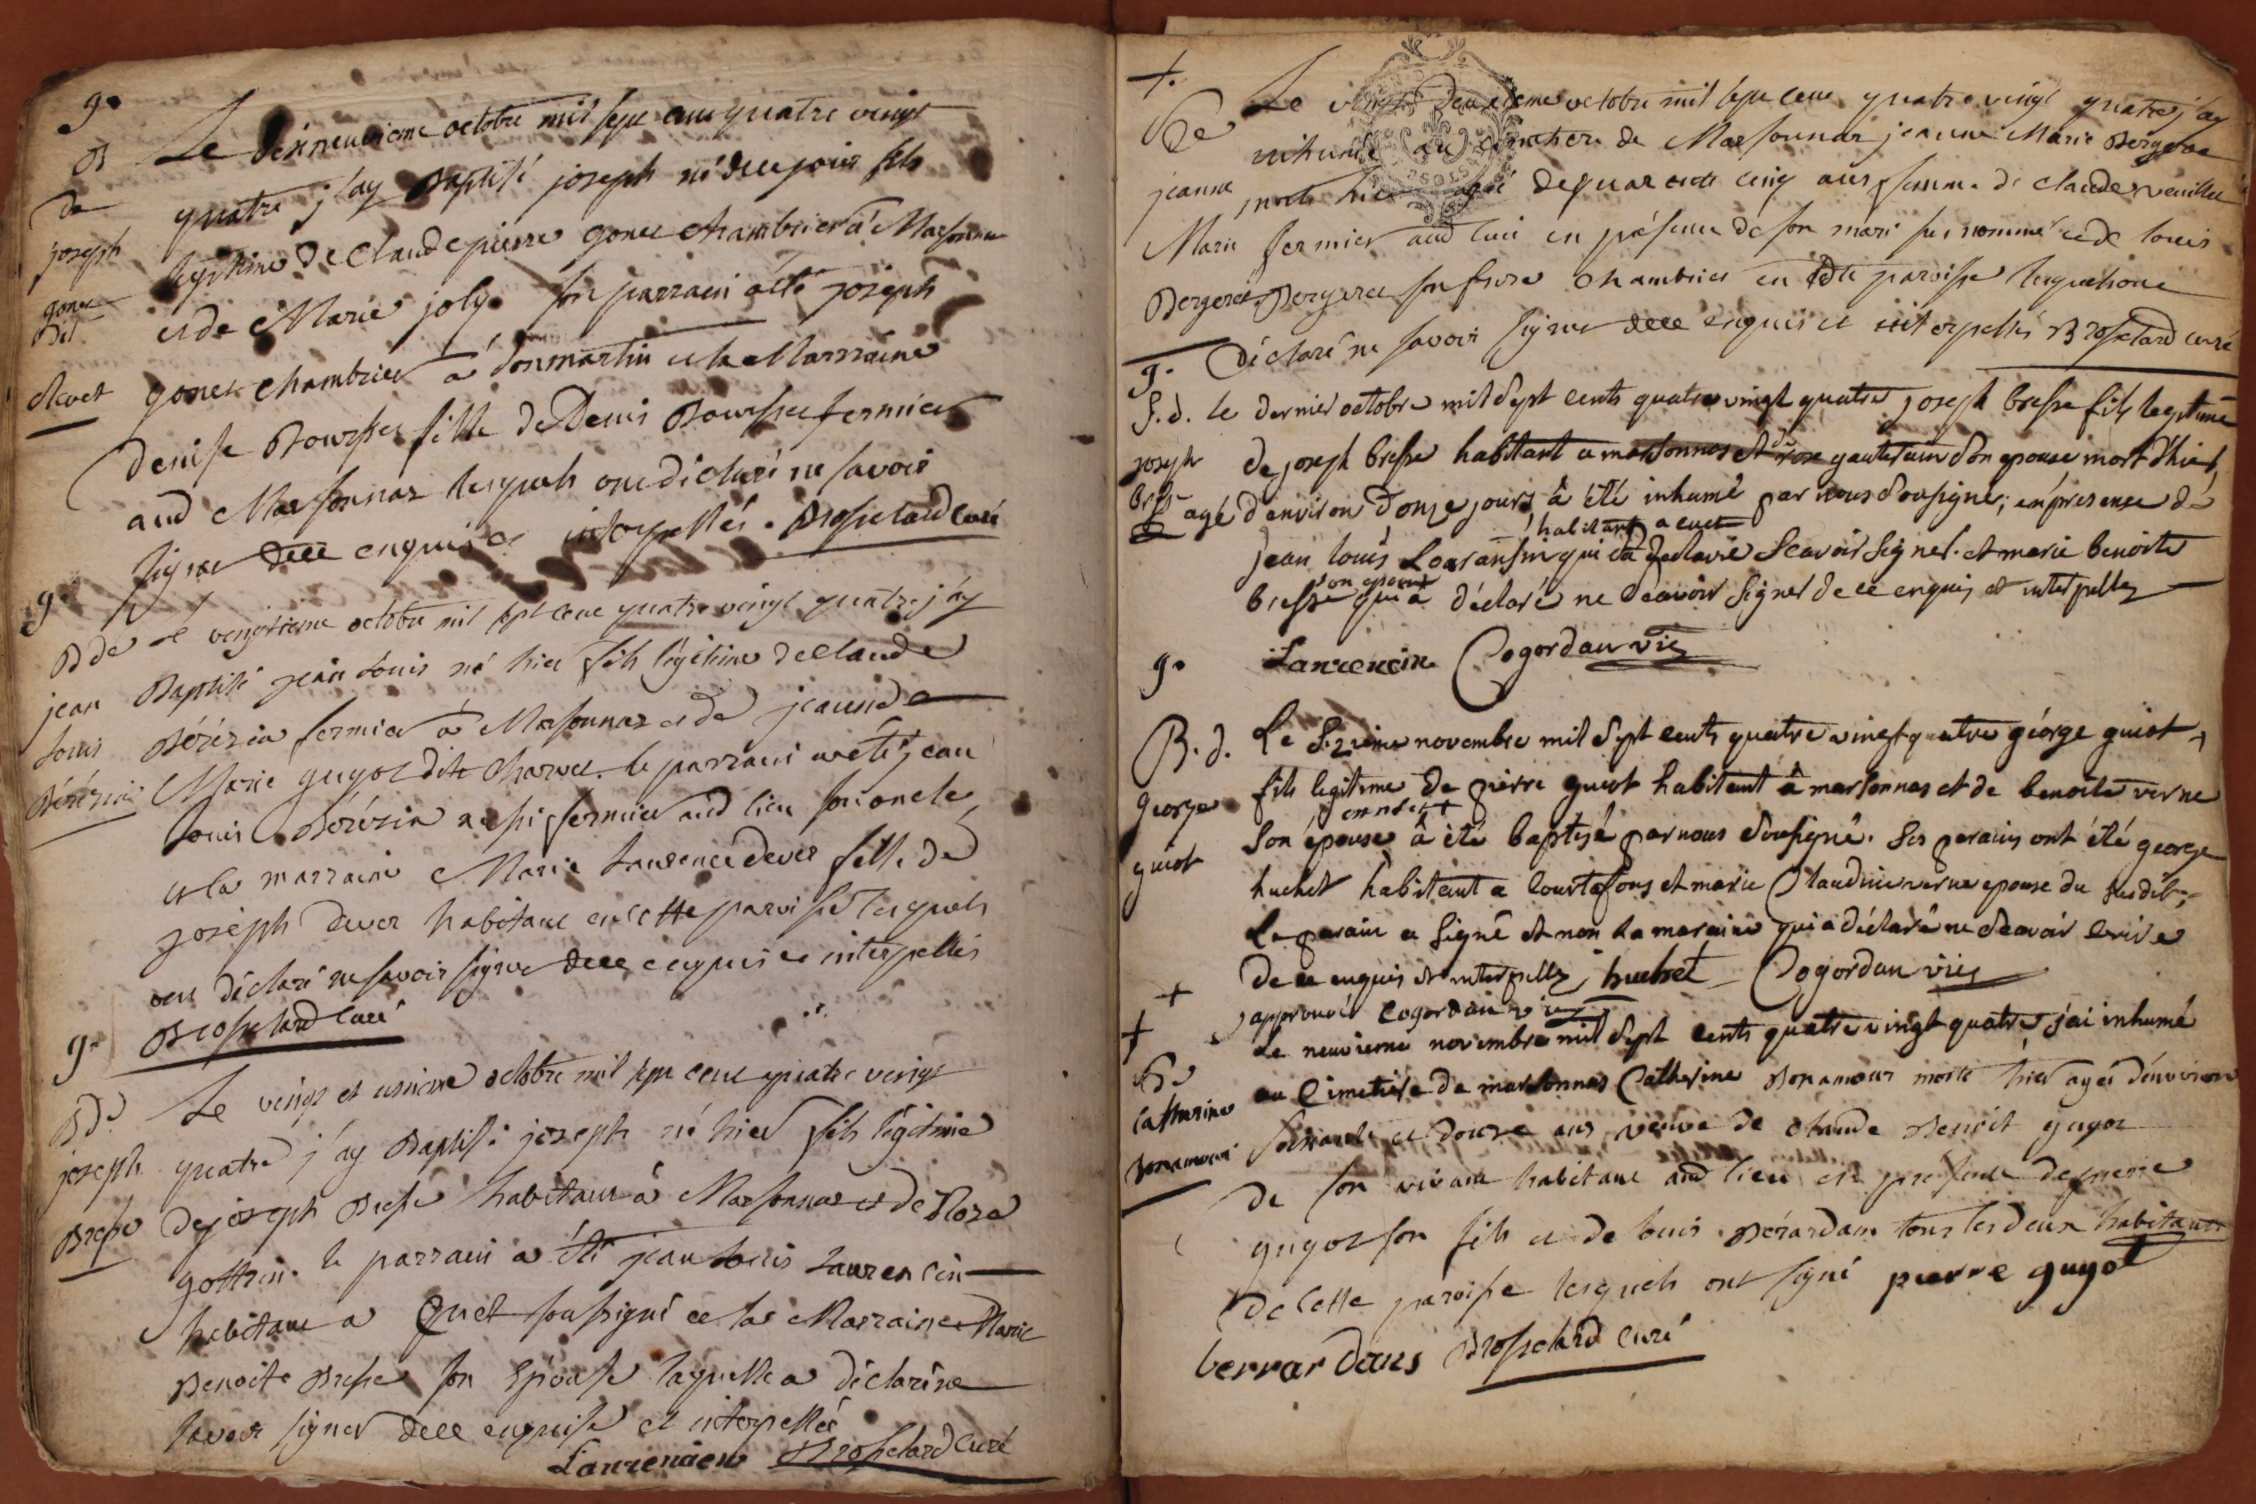 g.
B
de
joseph
gonet
dit
Revet
Le dixneuvieme octobre mil sept cent quatre vingt
quatre j'ay Baptisé joseph né deux jours fils
legitime de Claude pierre gonet chambrier à Marsonnas
et de Marie joly. son parrain a été joseph
gonet chambrier à donmartin et la Marraine
denise Bourssier fille de Denis Boursier fermier
aud Marsonnas lesquels ont déclaré ne savoir
signer de ce enquis et interpellés. Brosselard curé
g.
B de
jean
Louis
Bérézia
Le vingtieme octobre mil sept cent quatre vingt quatre j'ay
Baptisé jean Louis né hier fils légitime de Claude
Bérézia fermier à Marsonnas et de jeanne
Marie guyot dite charvet. le parrain a été jean
Louis Bérézia aussi fermier aud lieu son oncle
et la marraine Marie Laurence devez fille de
joseph devez habitant en cette paroisse lesquels
ont déclaré ne savoir signer de ce enquis et interpellés
Brosselard Curé
g.
B de
joseph
Bresse
Le vingt et unieme octobre mil sept cent quatre vingt
quatre j'ay Baptisé joseph né hier fils légitime
de joseph Bresse habitant à Marsonnas et de Roze
gottrin. le parrain a été jean Louis Laurencin
habitant a Cuet soussigné et la Marraine Marie
Benoite Bresse son Epouse laquelle a déclaré ne
savoir signer de ce enquise et interpellée
Laurencien Brosselard curé
+.
Se
jeanne
Marie
Bergeret
Le vingt deuxieme octobre mil sept cent quatre vingt quatre j'ay
inhumé au cimetiere de Marsonnas jeanne Marie Bergeret
morte hier agée de quarante cinq ans femme de Claude
fermier aud lieu en présence de son mari sus nommé et de louis
Bergeret son frere chambrier en cette paroisse lesquels ont
déclaré ne savoir signer de ce enquis et interpellés Brosselard curé
g.
S. d.
joseph
bresse
le dernier octobre mil Sept cents quatre vingt quatre joseph bresse fils legitime
de joseph bresse habitant a marsonnas et de rose gauterain son epouse mort d'hier,
agé d'environ d'onze jours, à été inhumé par nous soussigné; en presence de
habitant a cuet
jean louis Loaransin qui a declaré Scavoir signer. et marie benoite
son epouse
bresse qui a déclaré ne Scavoir signer de ce enquis et interpellez
Laurencin Cogordan vic
g.
B. d.
george
guiot
Le Sizieme novembre mil Sept cents quatre vingt quatre géorge guiot
fils legitime de pierre guiot habitant à marsonnas et de benoite verne
Son épouse à été baptisé par nous Sousigné. Ses parains ont été george
huchet habitant a Courtafons et marie Claudine verne epouse du susdit;
Le parain a Signé et non la maraine qui a déclaré ne Scavoir ecrire
de ce enquis et interpellez huchet Cogordan vic
+ approuvé Cogordan vic
+
Se
Catherine
Bonamour
Le neuvieme novembre mil Sept cents quatre vingt quatre j'ai inhumé
au Cimetiere de marsonnas Catherine Bonamour morte hier agée d'environ
soixante et douze ans veuve de claude Benoit guyot
de son vivant habitant aud lieu en presence de pierre
guyot son fils et de louis Bérardan tous les deux habitants
de cette paroisse lesquels ont signé pierre guyot
berrardans Brosselard curé